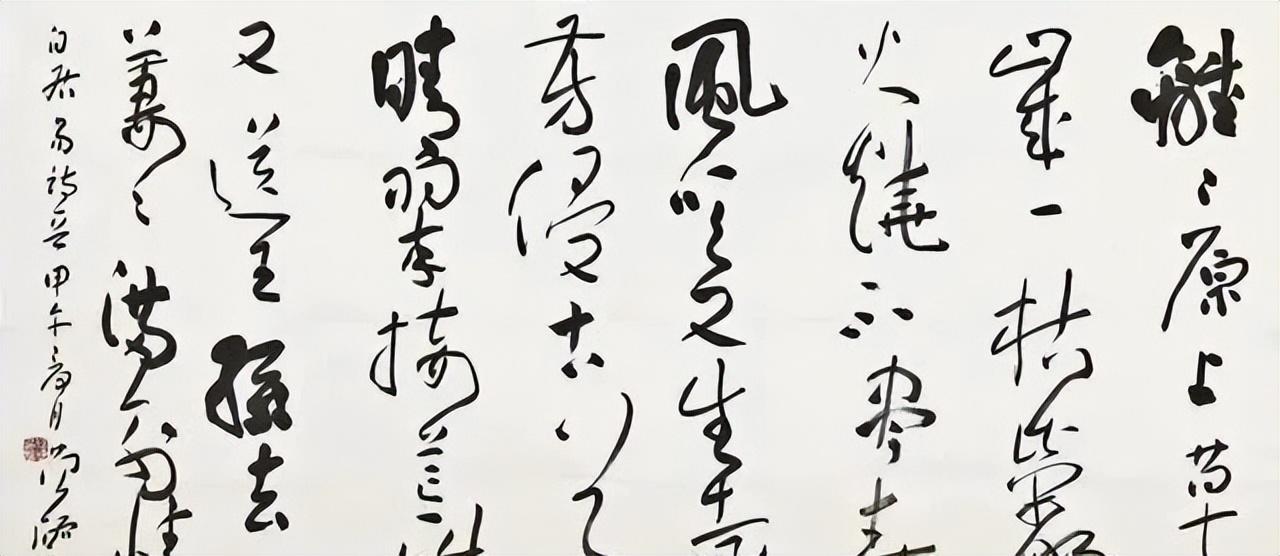 離〻原上草
歲一枯榮野
火燒不盡春
風吹又生遠
芳侵古道
晴翠接荒城
又送王孫去
萋〻滿別情
白居易詩 甲午夏月